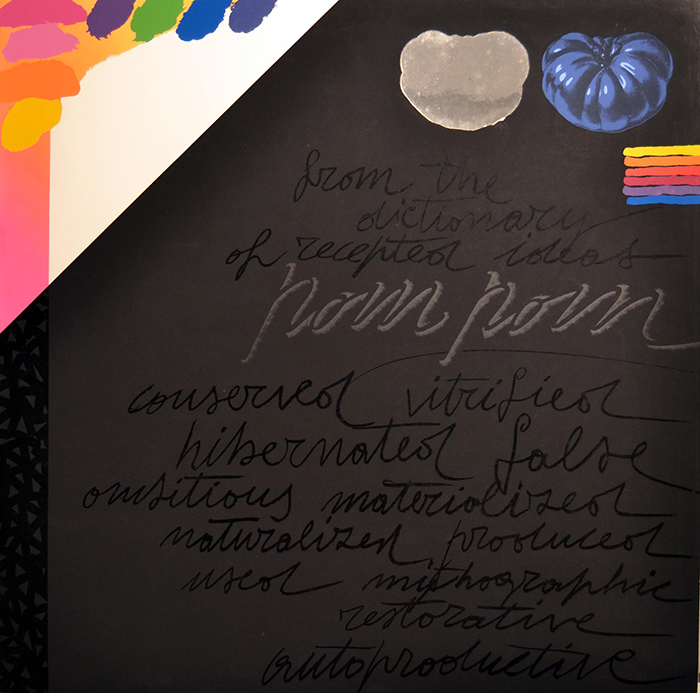 from the
dictionary
of recepted ideas
pom pom
conserved vitrified
hibernated false
ambitious materialized
naturalized produced
used mythographic
restorative
autoproductive